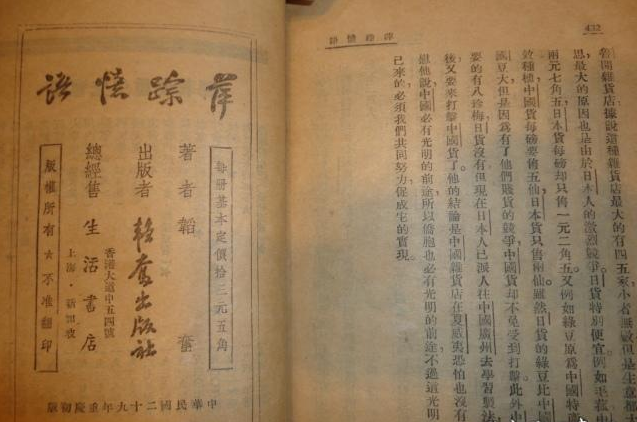 432
萍踪憶語
開雜貨店據說這種雜貨店最大的有四五家,小者無數但是生意都
思,最大的原因也是由於日本人的激烈競爭。日貨特別便宜例如毛
兩元七角五日本貨每磅却只售一元二角五。又例如綠豆原為中國特產
效種植中國貨每磅要售五仙,日本貨只售兩仙雖然日貨的綠豆比中國
國豆大但是因為有了他們賤貨的競爭,中國貨却不免受到打擊。此外中
要的有八珍梅日貨沒有但現在日本人已派人往中國廣州去學習製法
後又要來打擊中國貨了。他的結論是中國雜貨店在夏威夷恐怕也沒有
但他說中國必有光明的前途所以僑胞也必有光明的前途,不過這光明
己來的,必須我們共同努力促成它的實現。
萍踪憶語
每冊基本定價拾三元五角
著者 韜奮
出版者 韜奮出版社
總經售 生活書店
香港大道中五四號
上海・新加坡
版權所有★不准翻印
中華民國二十九年重慶初版